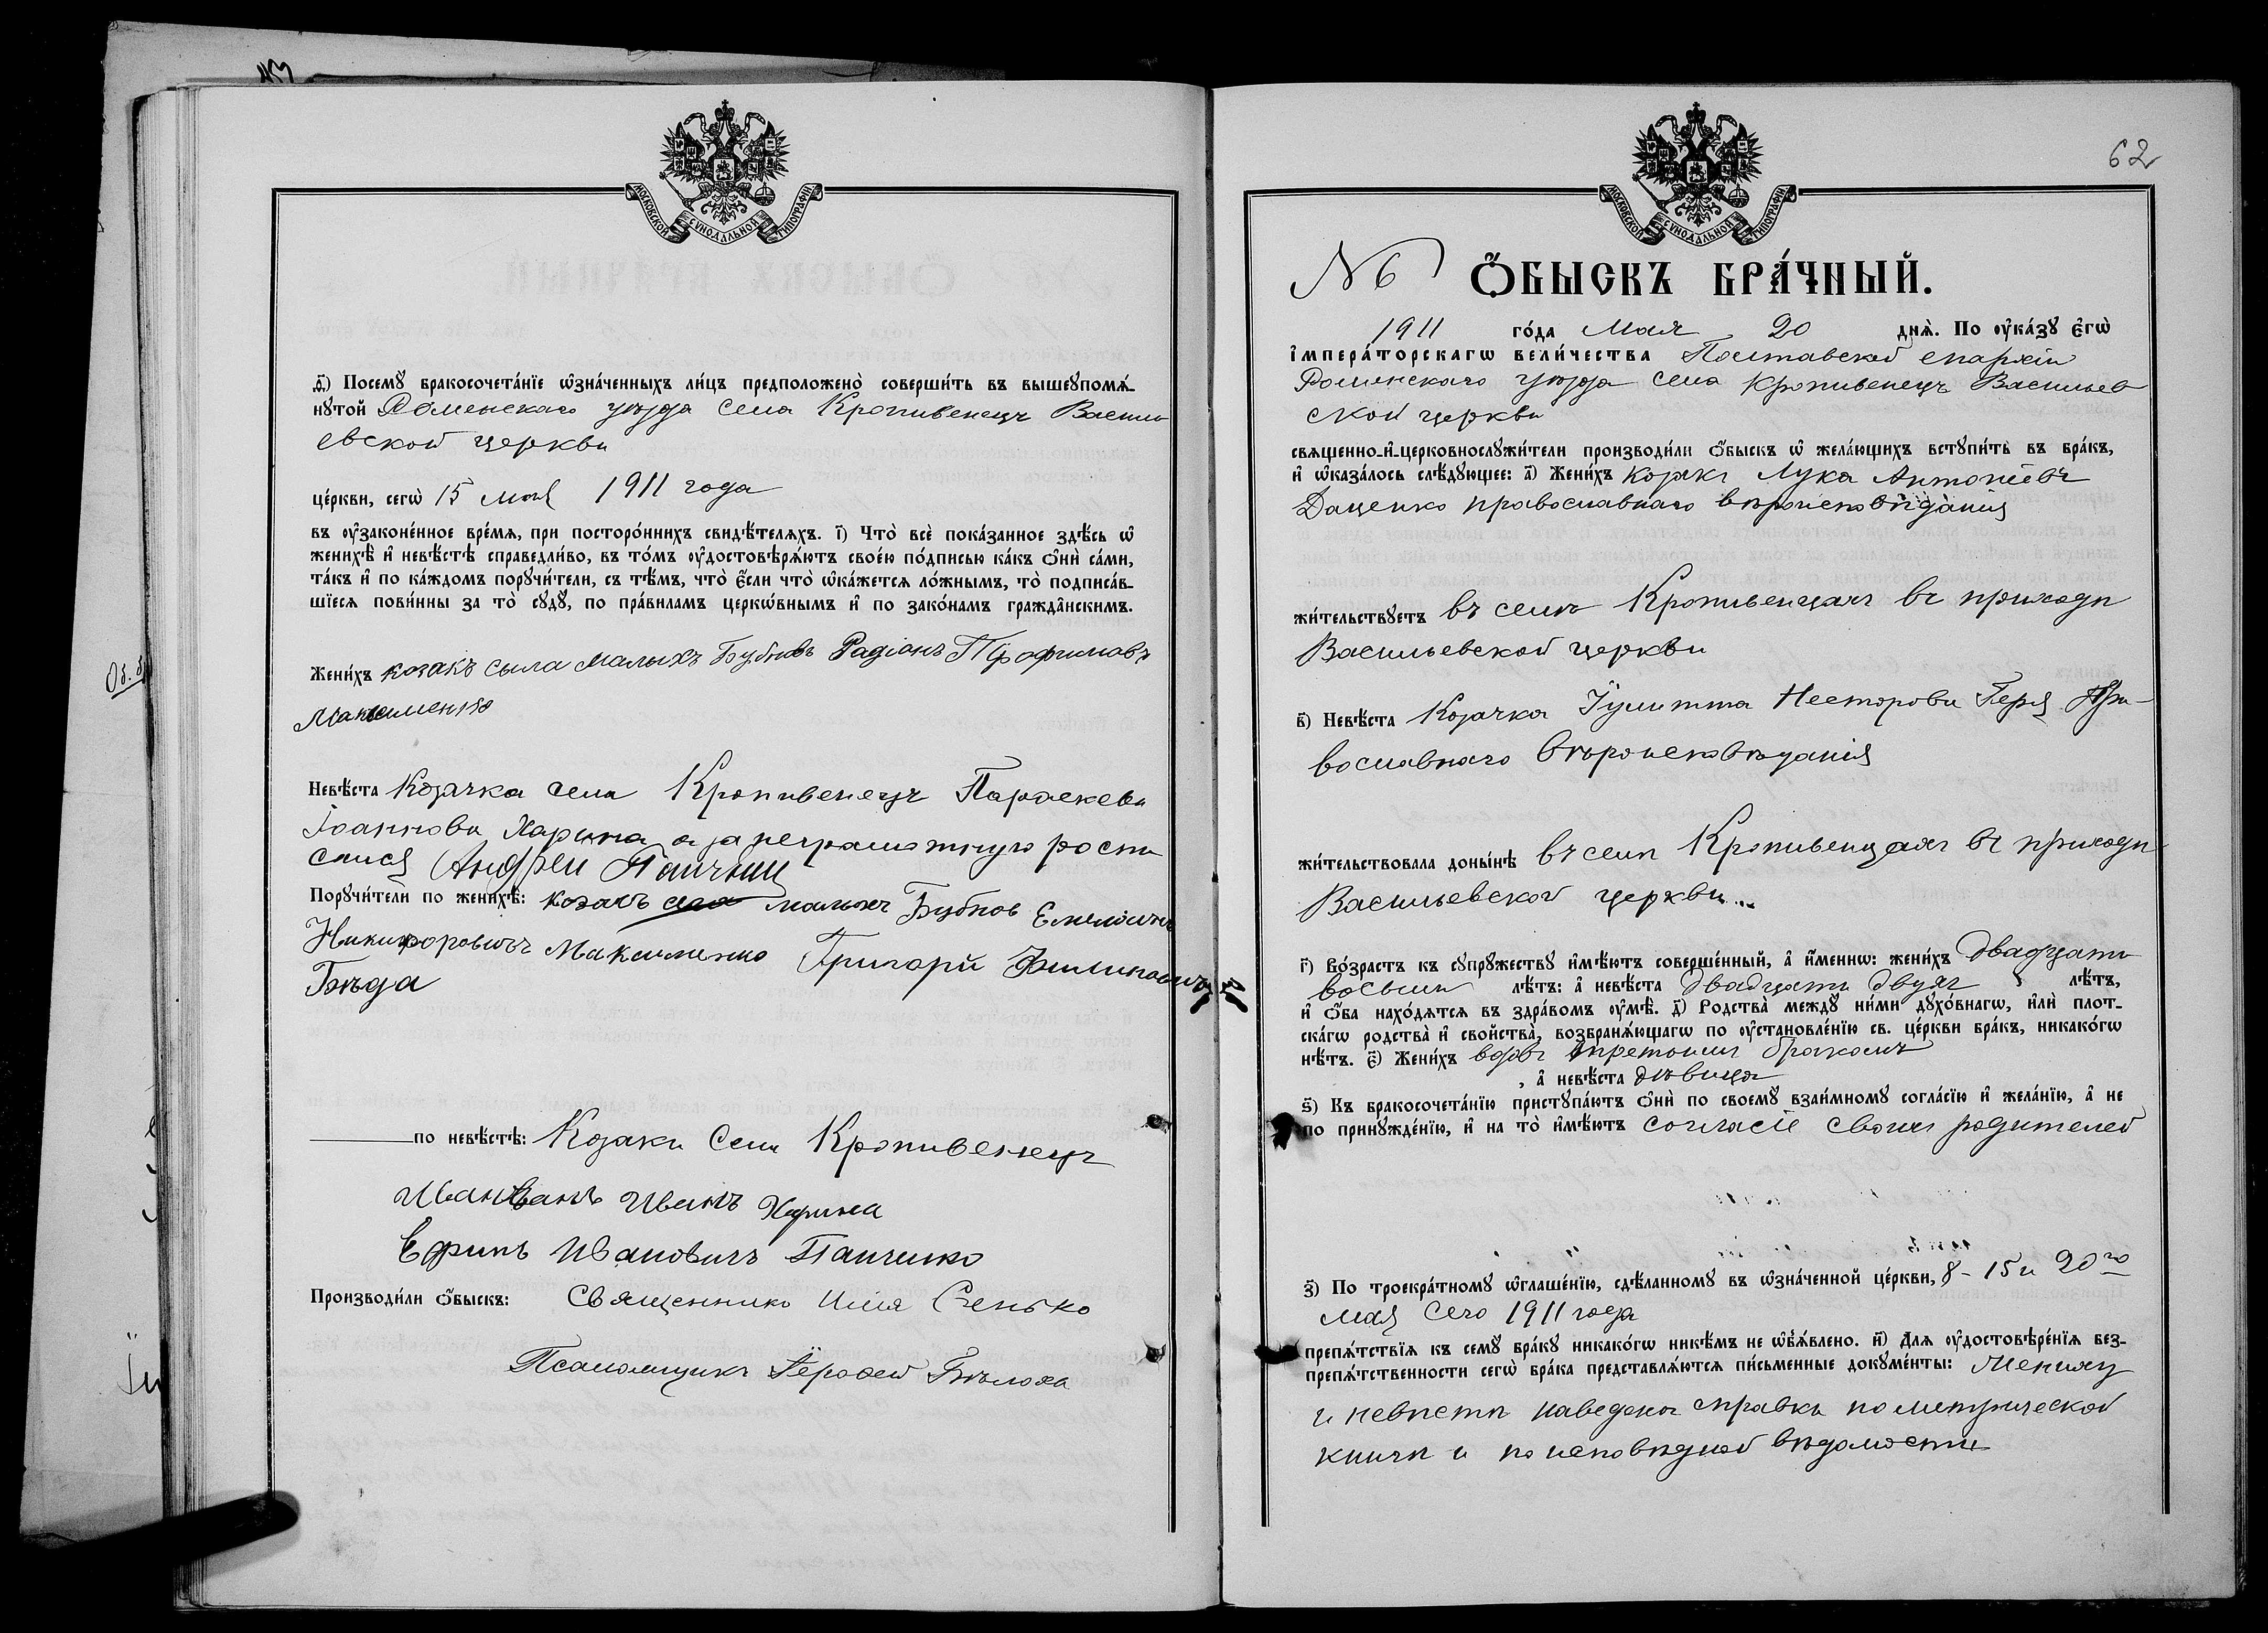 МОСКОВСКОЙ СѴНОДАЛЬНОЙ ТИПОГРАФІИ
ѳ҃) Посемꙋ̀ бракосочета́нїе ѡ҆зна́ченныхъ ли́цъ предположено̀ соверши́ть въ вышеꙋпомѧ́-
нꙋтой Роменскаго уѣзда села Кропивенецъ Василь
евской церкви
це́ркви, сегѡ̀ 15 мая 1911 года
въ ᲂу҆законе́нное вре́мѧ, при посторо́ннихъ свидѣ́телѧхъ. і҃) Что̀ всѐ пока́занное здѣ́сь ѡ҆
женихѣ̀ и҆ невѣ́стѣ справедли́во, въ то́мъ ᲂу҆достовѣрѧ́ютъ свое́ю по́дписью ка́къ ѻ҆нѝ са́ми,
та́къ и҆ по ка́ждомъ порꙋчи́тели, съ тѣ́мъ, что̀ є҆́сли что̀ ѡ҆ка́жетсѧ ло́жнымъ, то̀ подписа́в-
шїесѧ пови́нны за то̀ сꙋдꙋ̀, по пра́виламъ церкѡ́внымъ и҆ по зако́намъ гражда̑нскимъ.
Жени́хъ козакъ сыла малыхъ Бубновъ Радіонъ Трофимовъ
Максименко
Невѣ́ста Козачка села Кропивенецъ Параскева
Іоаннова Харина а за неграмотную роспи
сался Андрей Панчен
Порꙋчи́тели по женихѣ̀: козакъ малыхъ Бубнов Емельянъ
Никифоровичъ Максименко Григорй Филиповичъ
Бѣда
по невѣ́стѣ: Козаки села Кропивенецъ
Иванъ Харина
Ефимъ Ивановичъ Панченко
Производи́ли ѻ҆́быскъ: Священникъ Илія Сенько
Псаломщикъ Іерофей Бѣлоха
62
МОСКОВСКОЙ СѴНОДАЛЬНОЙ ТИПОГРАФІИ
N 6 Ѻ҆́БЫСКЪ БРА́ЧНЫЙ.
1911 го́да Мая 20 днѧ̀. По ᲂу҆ка́зꙋ є҆гѡ̀
і҆мпера́торскагѡ вели́чества Полтавской епархіи
Роменскаго уѣзда села Кропивенецъ Васильев
ской церкви
свѧщенно-и҆-церковнослꙋжи́тели производи́ли ѻ҆́быскъ ѡ҆ жела́ющихъ встꙋпи́ть въ бра́къ,
и҆ ѡ҆каза́лось слѣ́дꙋющее: а҃) Жени́хъ козакъ Лука Антоніевъ
Даценко православнаго вѣроисповѣданія
жи́тельствꙋетъ въ селѣ Кропивенцахъ въ приходѣ
Васильевской церкви
в҃) Невѣ́ста Козачка Іулитта Несторова Геря Пра-
вославнаго вѣроисповѣданія
жи́тельствовала доны́нѣ въ селѣ Кропивенцахъ въ приходѣ
Васильевской церкви
г҃) Во́зрастъ къ сꙋпрꙋ́жествꙋ и҆мѣ́ютъ соверше́нный, а҆ и҆́меннѡ: жени́хъ двадцати
восьми лѣ́тъ: а҆ невѣ́ста двадцати двухъ лѣ́тъ,
и҆ ѻ҆́ба нахо́дѧтсѧ въ здра́вомъ ᲂу҆мѣ̀. д҃) Родства̀ междꙋ̀ ни́ми дꙋхо́внагѡ, и҆лѝ плот-
ска́гѡ родства̀ и҆ свойства̀, возбранѧ́ющагѡ по ᲂу҆становле́нїю св. це́ркви бра́къ, никако́гѡ
нѣ́тъ. є҃) Жени́хъ вдовъ третьимъ бракомъ
, а҆ невѣ́ста дѣвица
ѕ҃) Къ бракосочета́нїю пристꙋпа́ютъ ѻ҆нѝ по своемꙋ̀ взаи́мномꙋ согла́сїю и҆ жела́нїю, а҆ не
по принꙋжде́нїю, и҆ на то̀ и҆мѣ́ютъ согласіе своихъ родителей
з҃) По троекра́тномꙋ ѡ҆глаше́нїю, сдѣ́ланномꙋ въ ѡ҆зна́ченной це́ркви, 8 - 15 и 20го
мая сего 1911 года
препѧ́тствїѧ къ семꙋ̀ бра́кꙋ никако́гѡ никѣ́мъ не ѡ҆б̾ѧ́влено. и҃) Длѧ ᲂу҆достовѣре́нїѧ без-
препѧ́тственности сегѡ̀ бра́ка представлѧ́ютсѧ пи́сьменные докꙋме́нты: Жениху
и невѣстѣ наведена справка по метрической
книги и по исповѣдной вѣдомости